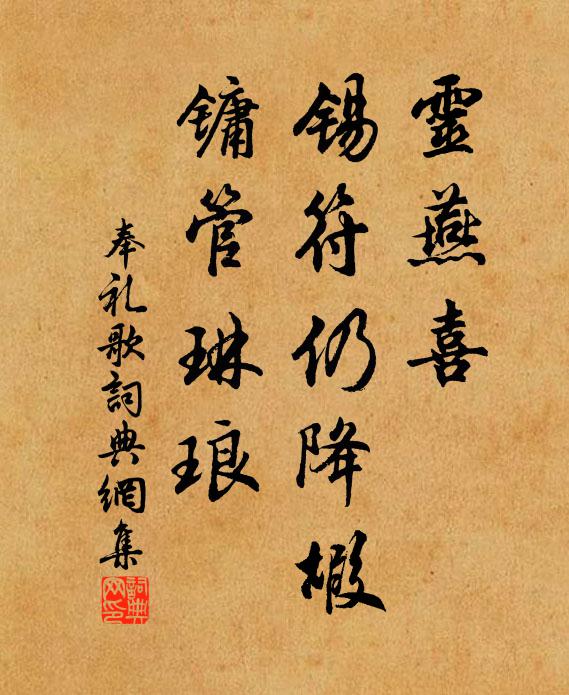 靈燕喜
錫符仍降嘏
鏞管琳琅
奉礼歌詞典網集
詞典网印